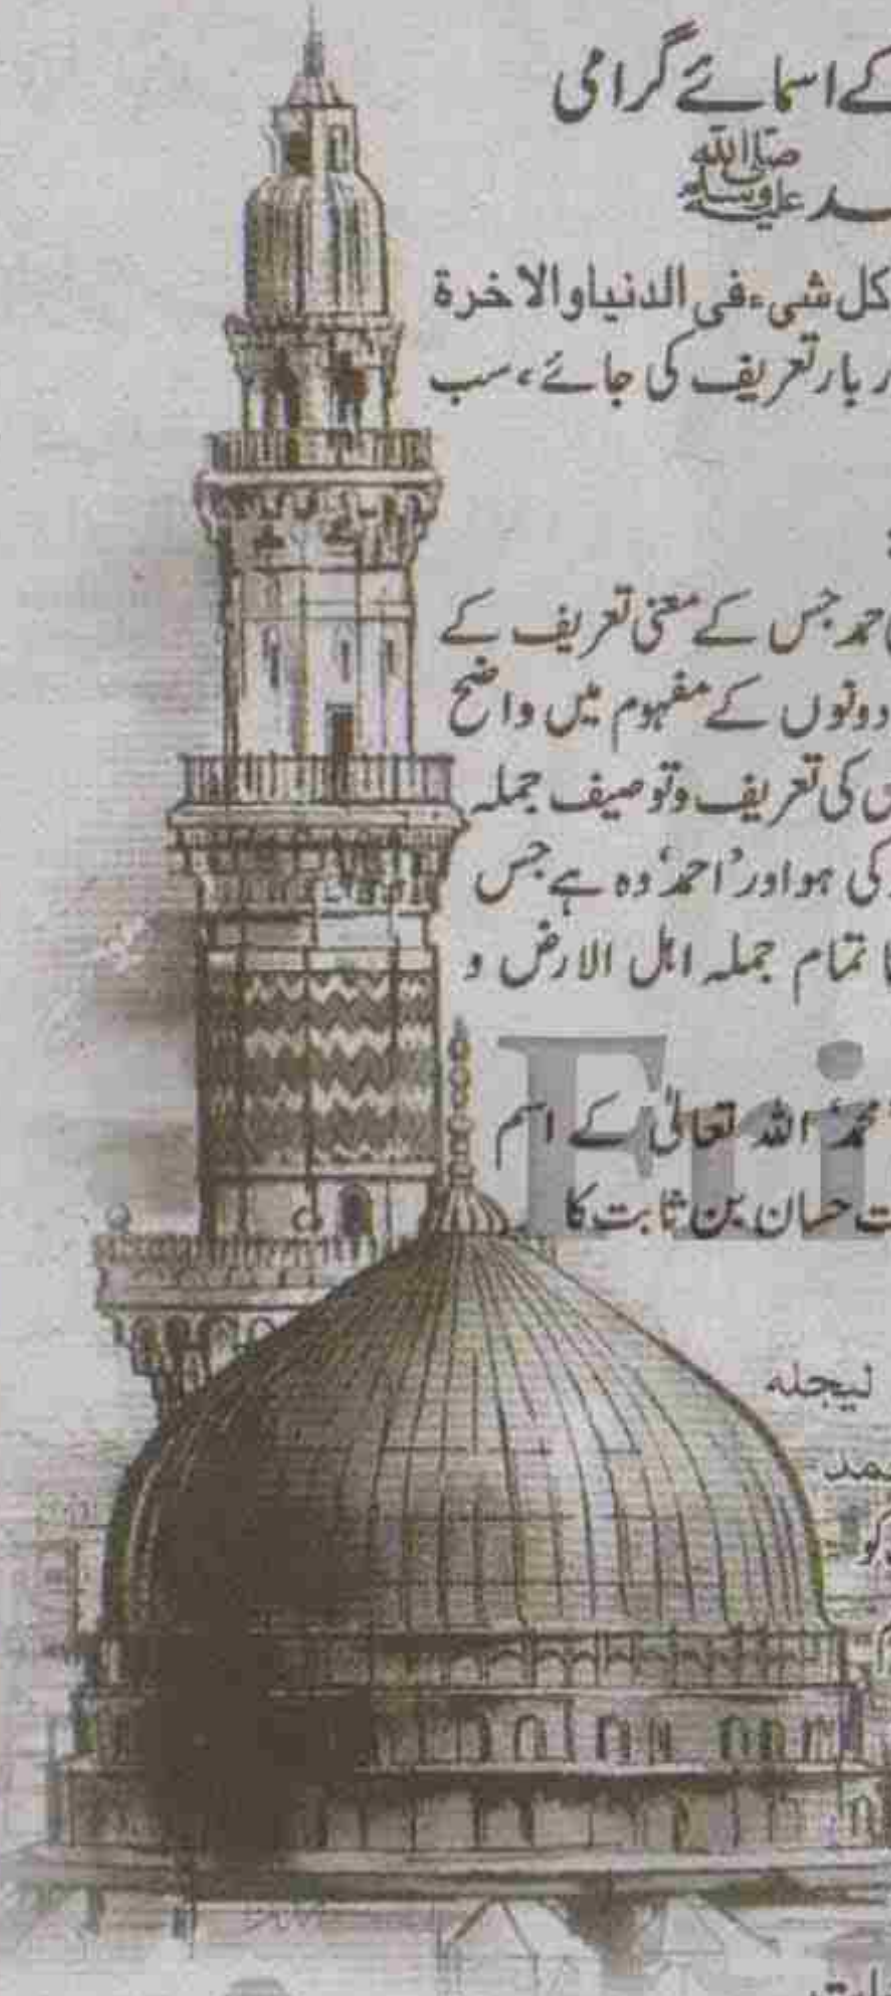 کے اسمائے گرامی
صلی اللہ علیہ وسلم
کل شیء فی الدنیا والاخرۃ
بار تعریف کی جائے، سب
احمد جس کے معنی تعریف کے
دونوں کے مفہوم میں واضح
کی تعریف و توصیف جملہ
کی ہو اور 'احمد' وہ ہے جس
تمام جملہ اہل الارض و
Fri
محمدؐ اللہ تعالیٰ کے اسم
حسان بن ثابت کا
لیجلہ
کو